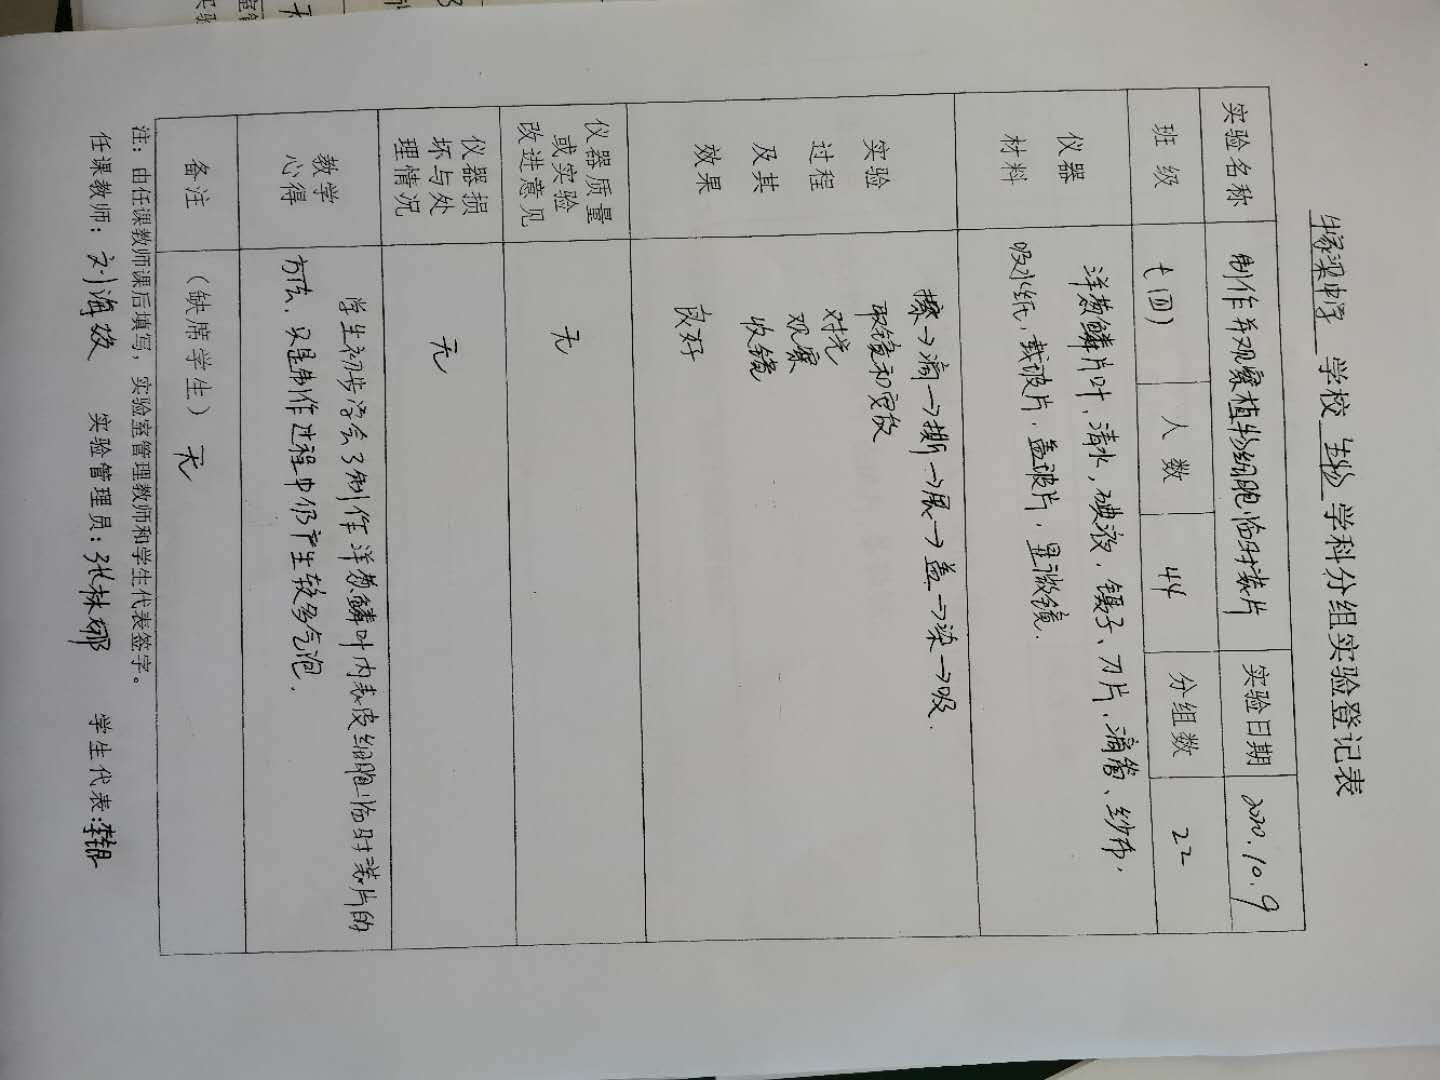 梁中学 学校 生物 学科分组实验登记表
实验名称 制作并观察植物细胞临时装片 实验日期 2020.10.9
班 级 七(四) 人 数 44 分组数 22
仪器
材料
洋葱鳞片叶、清水，碘液、镊子、刀片、滴管、纱布，
吸水纸，载玻片，盖玻片，显微镜.
实验
过程
及其
效果
擦→滴→撕→展→盖→染→吸.
取镜和安放
对光
观察
收镜
良好
仪器质量
或实验
改进意见
无
仪器损
坏与处
理情况
无
教学
心得
学生初步学会了制作洋葱鳞叶内表皮细胞临时装片的
方法，只是制作过程中仍产生较多气泡.
备注 (缺席学生) 无
注：由任课教师课后填写，实验室管理教师和学生代表签字。
任课教师：刘海 实验管理员：张林娜 学生代表：